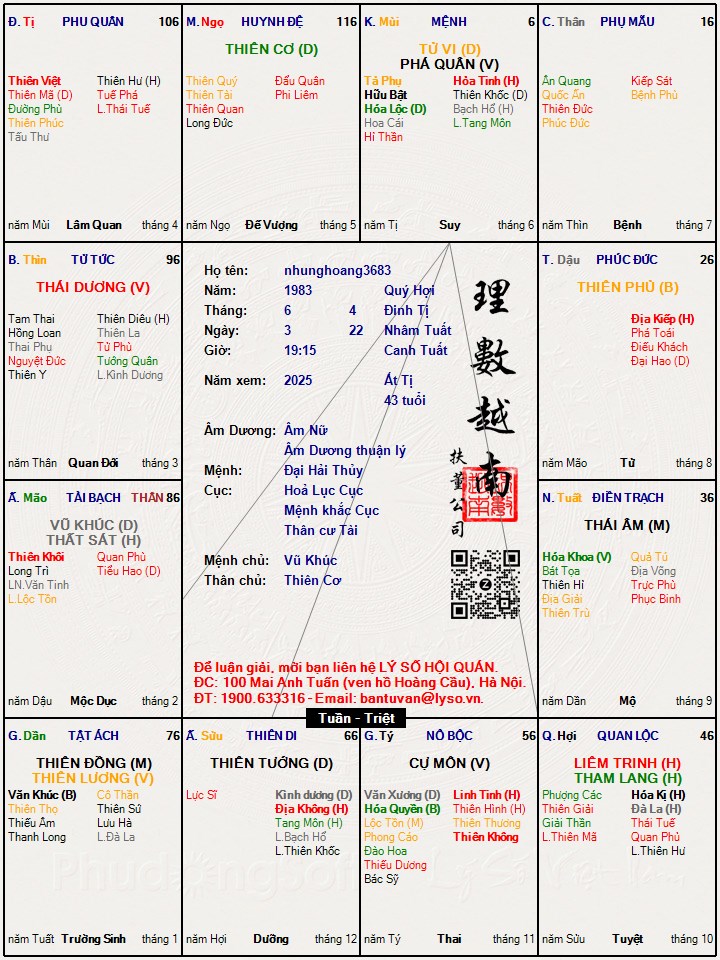 Đ. Tị PHU QUÂN 106
Thiên Việt Thiên Hư (H)
Thiên Mã (D) Tuế Phá
Đường Phù L.Thái Tuế
Thiên Phúc
Tấu Thư
năm Mùi Lâm Quan tháng 4
M. Ngọ HUYNH ĐỆ 116
THIÊN CƠ (D)
Thiên Quý Đẩu Quân
Thiên Tài Phi Liêm
Thiên Quan
Long Đức
năm Ngọ Đế Vượng tháng 5
K. Mùi MỆNH 6
TỬ VI (D)
PHÁ QUÂN (V)
Tả Phụ Hỏa Tinh (H)
Hữu Bật Thiên Khốc (D)
Hóa Lộc (D) Bạch Hổ (H)
Hoa Cái L.Tang Môn
Hỉ Thần
năm Tị Suy tháng 6
C. Thân PHỤ MẪU 16
Ân Quang Kiếp Sát
Quốc Ấn Bệnh Phù
Thiên Đức
Phúc Đức
năm Thìn Bệnh tháng 7
B. Thìn TỬ TỨC 96
THÁI DƯƠNG (V)
Tam Thai Thiên Diêu (H)
Hồng Loan Thiên La
Thai Phụ Tử Phù
Nguyệt Đức Tướng Quân
Thiên Y L.Kình Dương
năm Thân Quan Đới tháng 3
Họ tên: nhunghoang3683
Năm: 1983 Quý Hợi
Tháng: 6 4 Đinh Tị
Ngày: 3 22 Nhâm Tuất
Giờ: 19:15 Canh Tuất
Năm xem: 2025 Ất Tị
43 tuổi
Âm Dương: Âm Nữ
Âm Dương thuận lý
Mệnh: Đại Hải Thủy
Cục: Hoả Lục Cục
Mệnh khắc Cục
Thân cư Tài
Mệnh chủ: Vũ Khúc
Thân chủ: Thiên Cơ
理數越南
扶董公司
Z
Để luận giải, mời bạn liên hệ LÝ SỐ HỘI QUÁN.
ĐC: 100 Mai Anh Tuấn (ven hồ Hoàng Cầu), Hà Nội.
ĐT: 1900.633316 - Email: bantuvan@lyso.vn.
Tuần - Triệt
T. Dậu PHÚC ĐỨC 26
THIÊN PHỦ (B)
Địa Kiếp (H)
Phá Toái
Điếu Khách
Đại Hao (D)
năm Mão Tử tháng 8
Ấ. Mão TÀI BẠCH THÂN 86
VŨ KHÚC (D)
THẤT SÁT (H)
Thiên Khôi Quan Phù
Long Trì Tiểu Hao (D)
LN.Văn Tinh
L.Lộc Tồn
năm Dậu Mộc Dục tháng 2
N. Tuất ĐIỀN TRẠCH 36
THÁI ÂM (M)
Hóa Khoa (V) Quả Tú
Bát Tọa Địa Võng
Thiên Hỉ Trực Phù
Địa Giải Phục Binh
Thiên Trù
năm Dần Mộ tháng 9
G. Dần TẬT ÁCH 76
THIÊN ĐỒNG (M)
THIÊN LƯƠNG (V)
Văn Khúc (B) Cô Thần
Thiên Thọ Thiên Sứ
Thiếu Âm Lưu Hà
Thanh Long L.Đà La
năm Tuất Trường Sinh tháng 1
Ấ. Sửu THIÊN DI 66
THIÊN TƯỚNG (D)
Lực Sĩ Kình dương (D)
Địa Không (H)
Tang Môn (H)
L.Bạch Hổ
L.Thiên Khốc
năm Hợi Dưỡng tháng 12
G. Tý NÔ BỘC 56
CỰ MÔN (V)
Văn Xương (D) Linh Tinh (H)
Hóa Quyền (B) Thiên Hình (H)
Lộc Tồn (M) Thiên Thương
Phong Cáo Thiên Không
Đào Hoa
Thiếu Dương
Bác Sỹ
năm Tý Thai tháng 11
Q. Hợi QUAN LỘC 46
LIÊM TRINH (H)
THAM LANG (H)
Phượng Các Hóa Kị (H)
Thiên Giải Đà La (H)
Giải Thần Thái Tuế
L.Thiên Mã Quan Phủ
L.Thiên Hư
năm Sửu Tuyệt tháng 10